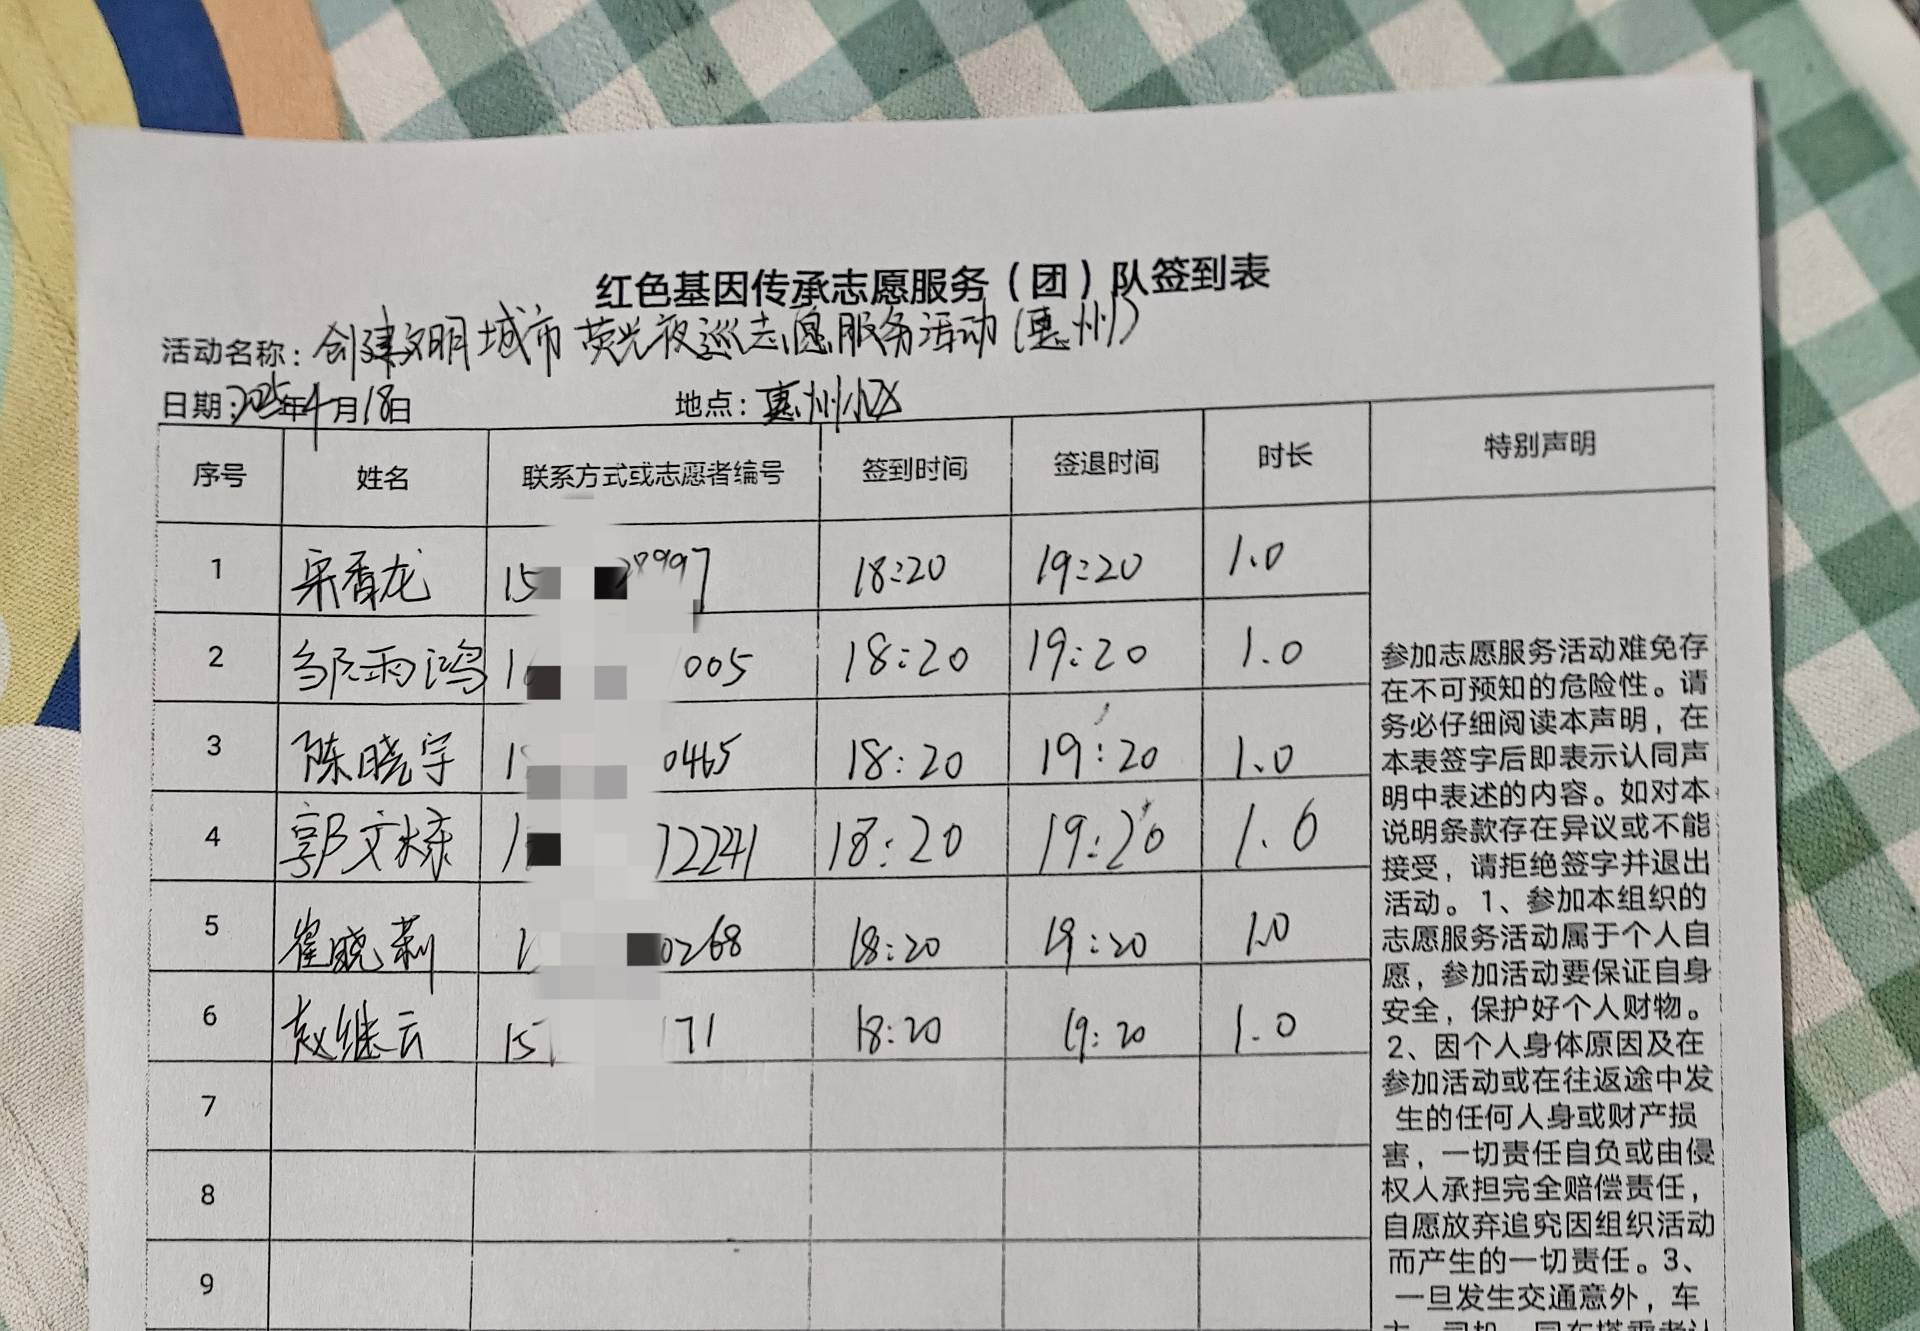 红色基因传承志愿服务（团）队签到表
活动名称：创建文明城市荧光夜巡志愿服务活动（惠州）
日期：2025年4月18日 地点：惠州小区
序号 姓名 联系方式或志愿者编号 签到时间 签退时间 时长 特别声明
1 香龙 15 18:20 19:20 1.0
2 邹雨鸿 1 005 18:20 19:20 1.0
3 陈晓宇 1 0465 18:20 19:20 1.0
4 郭文 1 12241 18:20 19:20 1.0
5 崔晓莉 1 0268 18:20 19:20 1.0
6 赵继云 15 171 18:20 19:20 1.0
7
8
9
参加志愿服务活动难免存
在不可预知的危险性。请
务必仔细阅读本声明，在
本表签字后即表示认同声
明中表述的内容。如对本
说明条款存在异议或不能
接受，请拒绝签字并退出
活动。1、参加本组织的
志愿服务活动属于个人自
愿，参加活动要保证自身
安全，保护好个人财物。
2、因个人身体原因及在
参加活动或在往返途中发
生的任何人身或财产损
害，一切责任自负或由侵
权人承担完全赔偿责任，
自愿放弃追究因组织活动
而产生的一切责任。3、
一旦发生交通意外，车